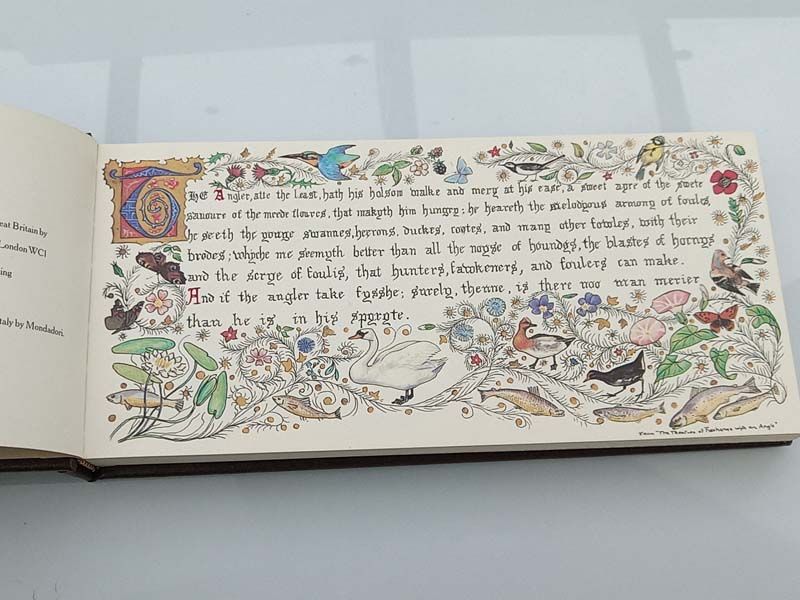 eat Britain by
London WC1
ing
taly by Mondadori.
THE Angler, atte the least, hath his holsom walke and mery at his ease, a sweet ayre of the swete
savoure of the meede floures, that makyth him hungry; he heareth the melodyous armony of foules,
he seeth the yonge swannes, heerons, duckes, cootes, and many other fowles, with their
brodes; whyche me seemyth better than all the noyse of houndes, the blastes of hornys
and the scrye of foulis, that hunters, fawkeners, and foulers can make.
And if the angler take fysshe; surely, thenne, is there noo man merier
than he is in his spyryte.
from "The Treatise of Fysshynge wyth an Angle"